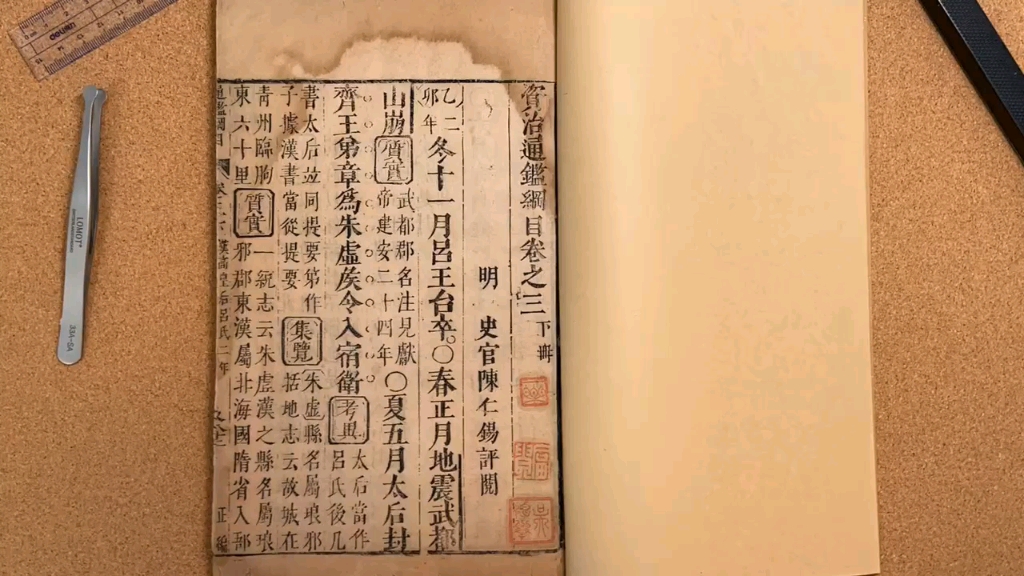 資治通鑑綱目卷之三下冊
明 史官陳仁錫評閱
乙卯二年冬十一月呂王台卒。○春正月地震武都
山崩質實武都郡名注見獻帝建安二十四年○夏五月太后封
齊王第章爲朱虛侯令入宿衛考異太后當作呂氏後凡
書太后竝同提要第作子據漢書當從提要集覽朱虛縣名屬琅邪括地志云故城在
青州臨朐東六十里質實一統志云朱虛漢之縣名屬琅邪郡東漢屬北海國隋省入郚
通鑑綱目
呂氏二年
正編